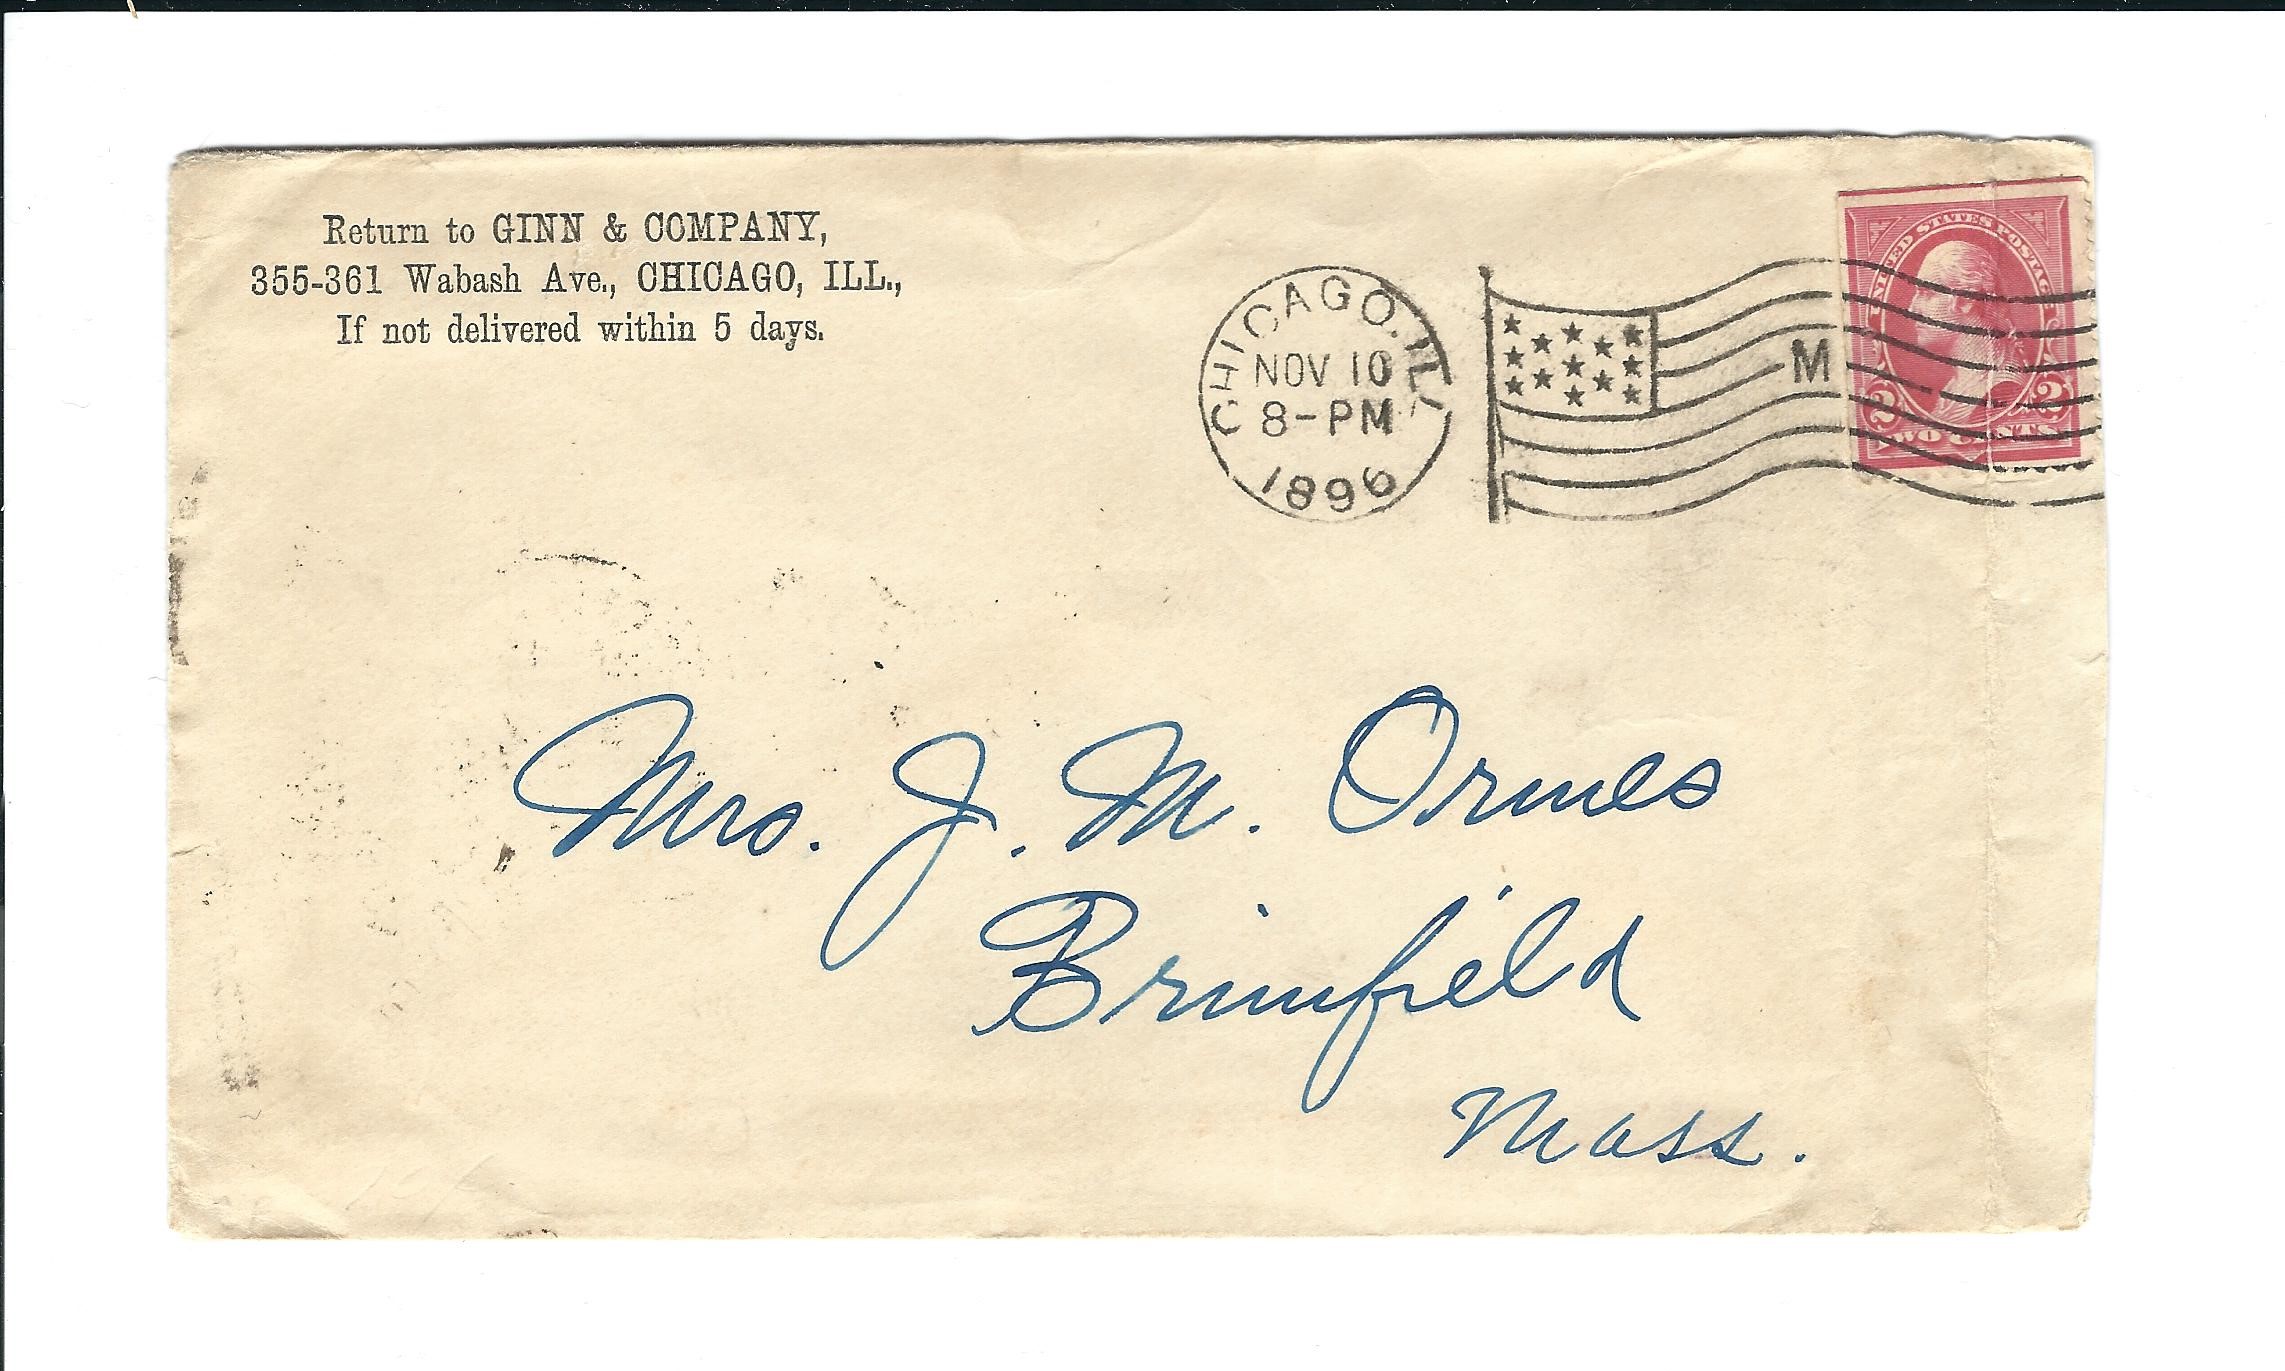 Return to GINN & COMPANY,
355-361 Wabash Ave., CHICAGO, ILL.,
If not delivered within 5 days.
CHICAGO, ILL.
NOV 10
8-PM
1896
M
UNITED STATES POSTAGE
2 2
TWO CENTS
Mrs. J. M. Ormes
Brimfield
Mass.